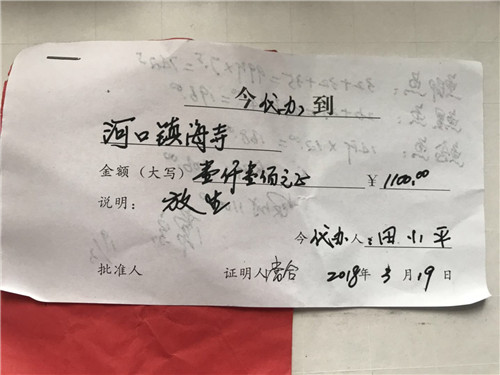 今代办到
河口镇海寺
金额（大写）壹仟壹佰元正 ￥1100.00
说明：放生
今代办人：田小平
批准人 证明人 2018年3月19日